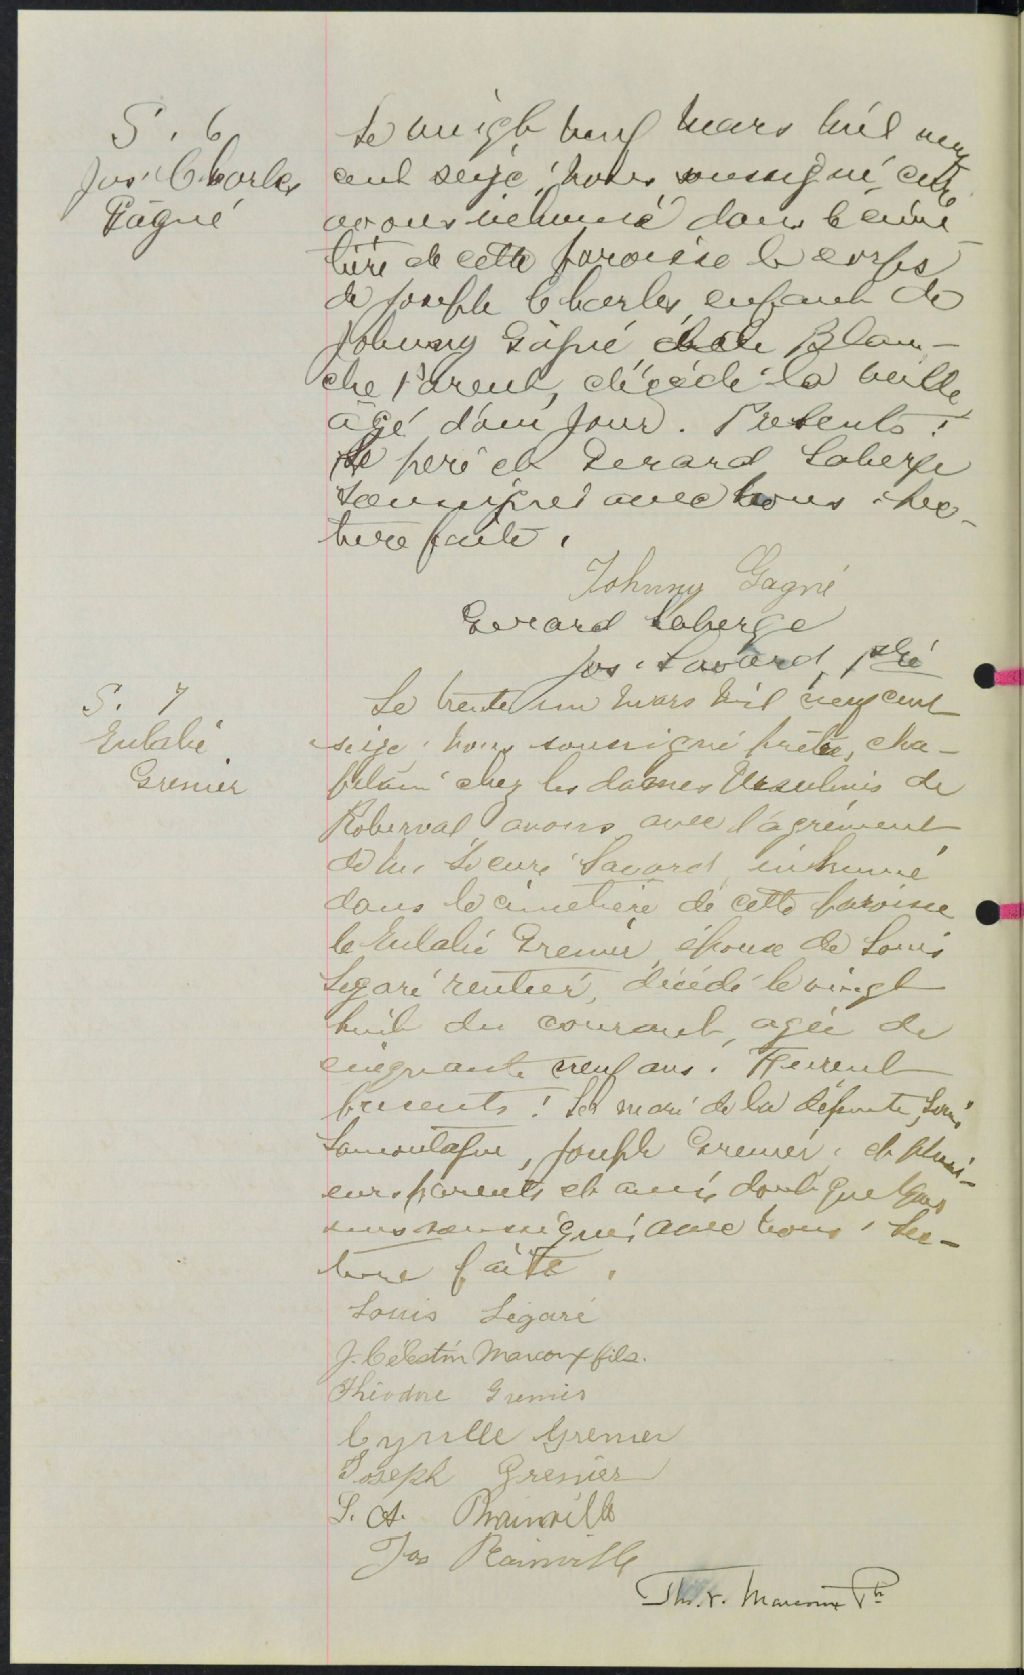 S. 6
Jos. Charles
Gagné
Le vingt neuf Mars mil neuf
cent seize, nous soussigné, curé
avons inhumé dans le cime
tière de cette paroisse le corps
de Joseph Charles, enfant de
Johnny Gagné et de Blan-
che Parent, décédé la veille
âgé d'un jour. Présents :
Le père et Gerard Laberge
soussignés avec nous. Lec-
ture faite.
Johnny Gagné
Gerard Laberge
Jos. Savard, ptre
S. 7
Eulalie
Grenier
Le trente un Mars mil neuf cent
seize, nous soussigné prêtre, cha-
pelain chez les dames Ursulines de
Roberval avons avec l'agrément
de M. le curé Savard, inhumé
dans le cimetière de cette paroisse
le Eulalie Grenier, épouse de Louis
Légaré rentier, décédé le vingt
huit du courant, agée de
cinquante neuf ans. Furent
présents : Le mari de la défunte, Louis
Lamontagne, Joseph Grenier, et plusi-
eurs parents et amis dont quelques
uns soussignés avec nous. Lec-
ture faite.
Louis Légaré
J. Célestin Marcoux fils.
Théodore Grenier
Cyrille Grenier
Joseph Grenier
L. A. Rainville
Jos Rainville
Ths. Marcoux Ptr